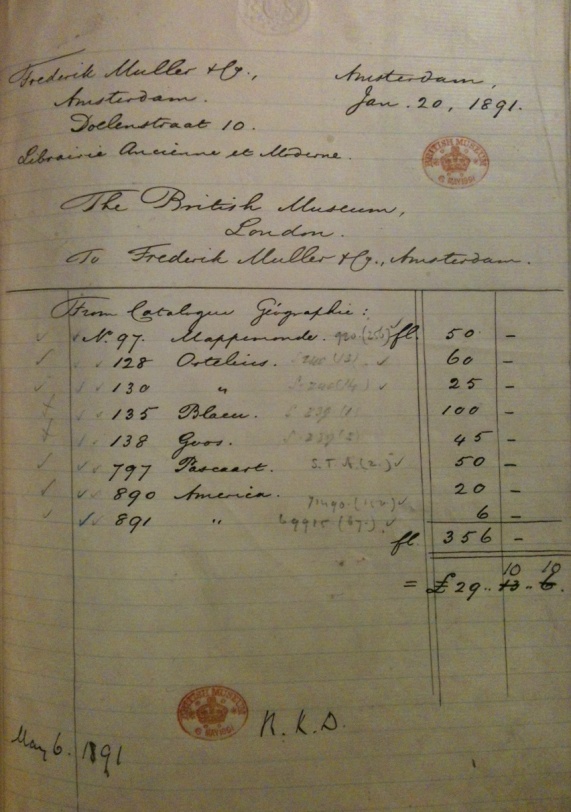 Frederik Muller & Co., Amsterdam,
Amsterdam. Jan. 20, 1891.
Doelenstraat 10.
Librairie Ancienne et Moderne.
BRITISH MUSEUM
The British Museum,
London.
To Frederik Muller & Co., Amsterdam.
From Catalogue Géographie:
No. 97. Mappemonde. fl. 50 –
128 Ortelius. 60 –
130 " 25 –
135 Blaeu. 100 –
138 Goos. 45 –
797 Pascaart. S.T.A (2.) 50 –
890 America. 20 –
891 " 6 –
fl. 356 –
10 10
= £ 29.. 13.. 6.
BRITISH MUSEUM
R. K. D.
May 6. 1891